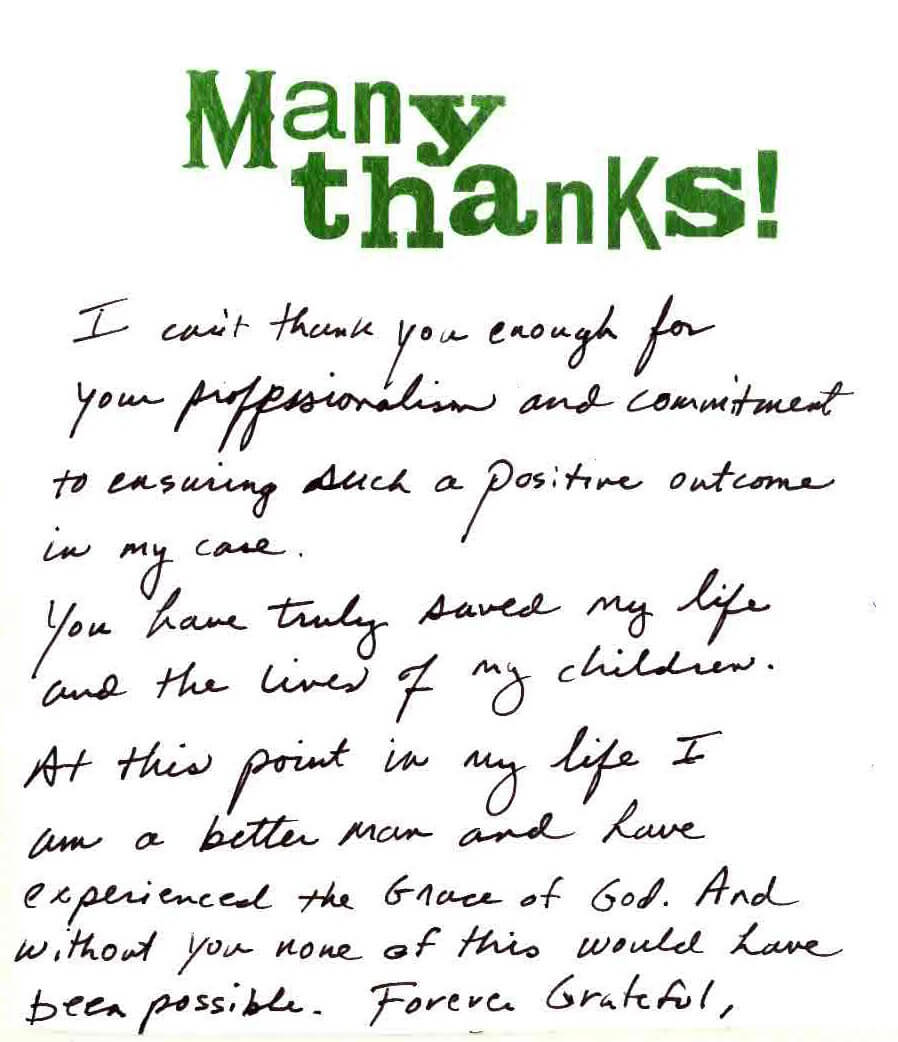 Many
thanks!
I can't thank you enough for
your proffessionalism and commitment
to ensuring such a positive outcome
in my case.
You have truly saved my life
and the lives of my children.
At this point in my life I
am a better man and have
experienced the Grace of God. And
without you none of this would have
been possible. Forever Grateful,